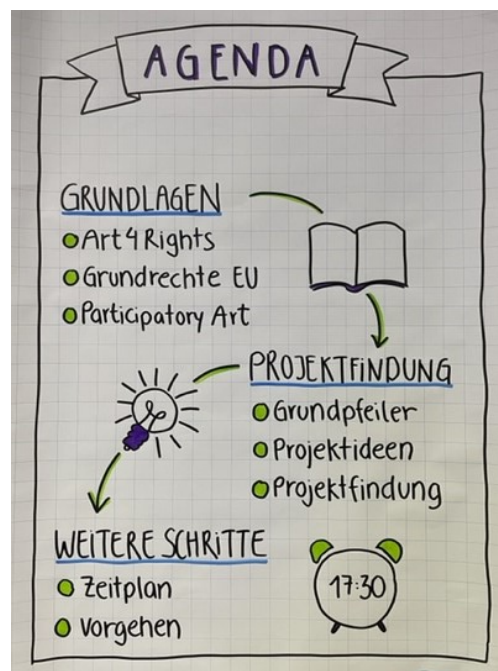 AGENDA
GRUNDLAGEN
Art4Rights
Grundrechte EU
Participatory Art
PROJEKTFINDUNG
Grundpfeiler
Projektideen
Projektfindung
WEITERE SCHRITTE
Zeitplan
Vorgehen
17:30